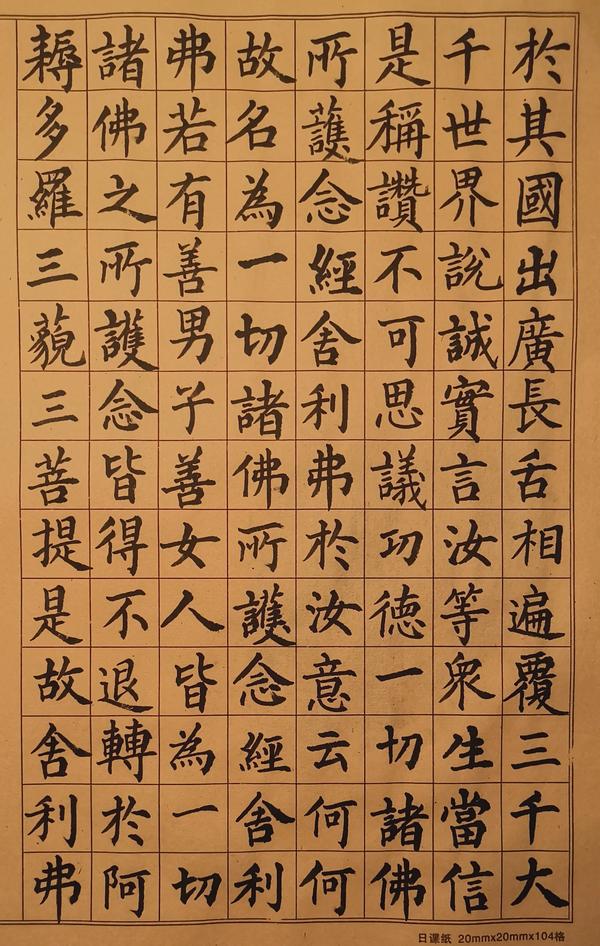 於其國出廣長舌相遍覆三千大
千世界說誠實言汝等衆生當信
是稱讚不可思議功德一切諸佛
所護念經舍利弗於汝意云何何
故名為一切諸佛所護念經舍利
弗若有善男子善女人皆為一切
諸佛之所護念皆得不退轉於阿
耨多羅三藐三菩提是故舍利弗
日课纸 20mmx20mmx104格